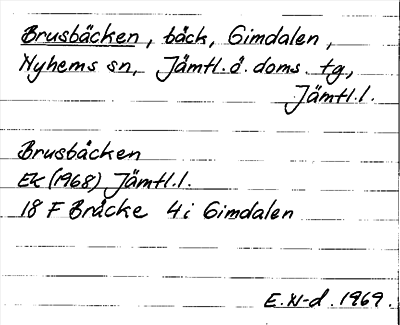 Brusbäcken, bäck, Gimdalen,
Nyhems sn, Jämtl.ö.doms.tg,
Jämtl.l.
Brusbäcken
EK (1968) Jämtl.l.
18 F Bräcke 4 i Gimdalen
E.N-d. 1969.